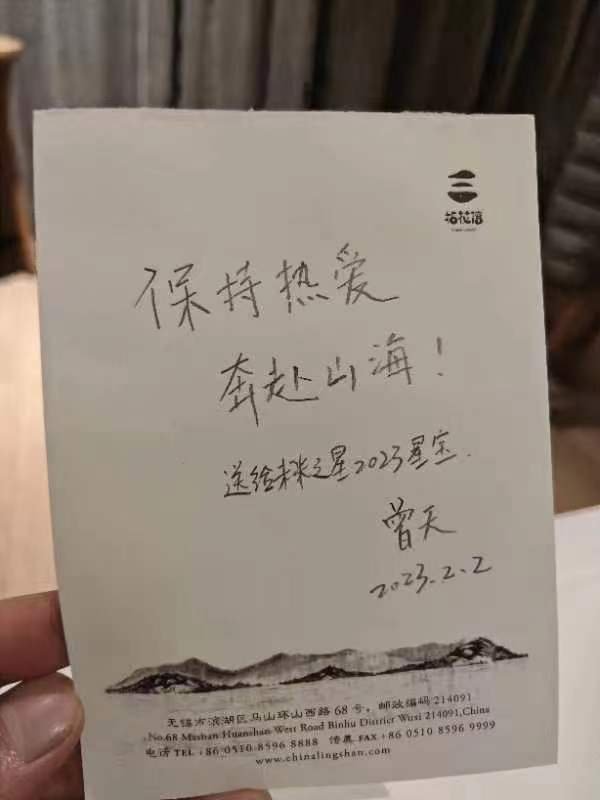 三
拈花湾
保持热爱
奔赴山海!
送给未来之星2023星宝.
曾天
2023.2.2
无锡市滨湖区马山环山西路68号,邮政编码214091
No.68 Mashan Huanshan West Road Binhu District Wuxi 214091,China
电话TEL+86 0510 8596 8888 传真FAX+86 0510 8596 9999
www.chinalingshan.com